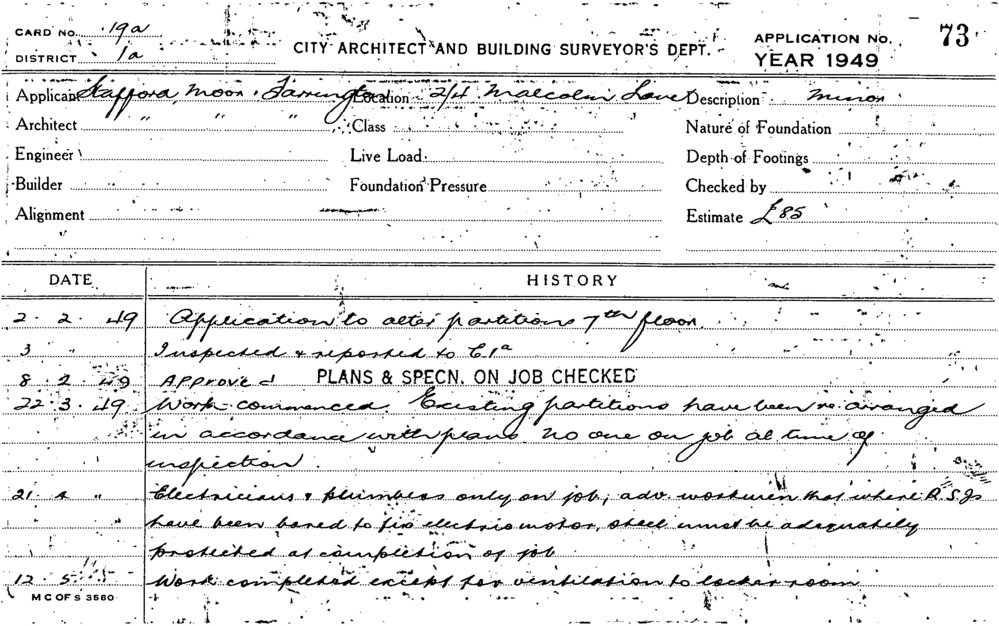 CARD No. 19a
CITY ARCHITECT AND BUILDING SURVEYOR'S DEPT.
APPLICATION No. 73
DISTRICT 1a
YEAR 1949
Applicant Stafford, Moor & Farrington Location 2/4 Malcolm Lane Description minor
Architect " " " Class Nature of Foundation
Engineer Live Load Depth of Footings
Builder Foundation Pressure Checked by
Alignment Estimate £85
DATE HISTORY
2. 2. 49 Application to alter partitions 7th floor.
3 " Inspected & reported to C1a
8. 2. 49 Approved PLANS & SPECN. ON JOB CHECKED
22. 3. 49 Work commenced. Existing partitions have been re arranged
in accordance with plans. No one on job at time of
inspection.
21 4 " Electricians & plumbers only on job; adv. workmen that where R.S.Js
have been bared to fix electric motor, steel must be adequately
protected at completion of job
12. 5. Work completed except for ventilation to locker room
M C OF S 3580